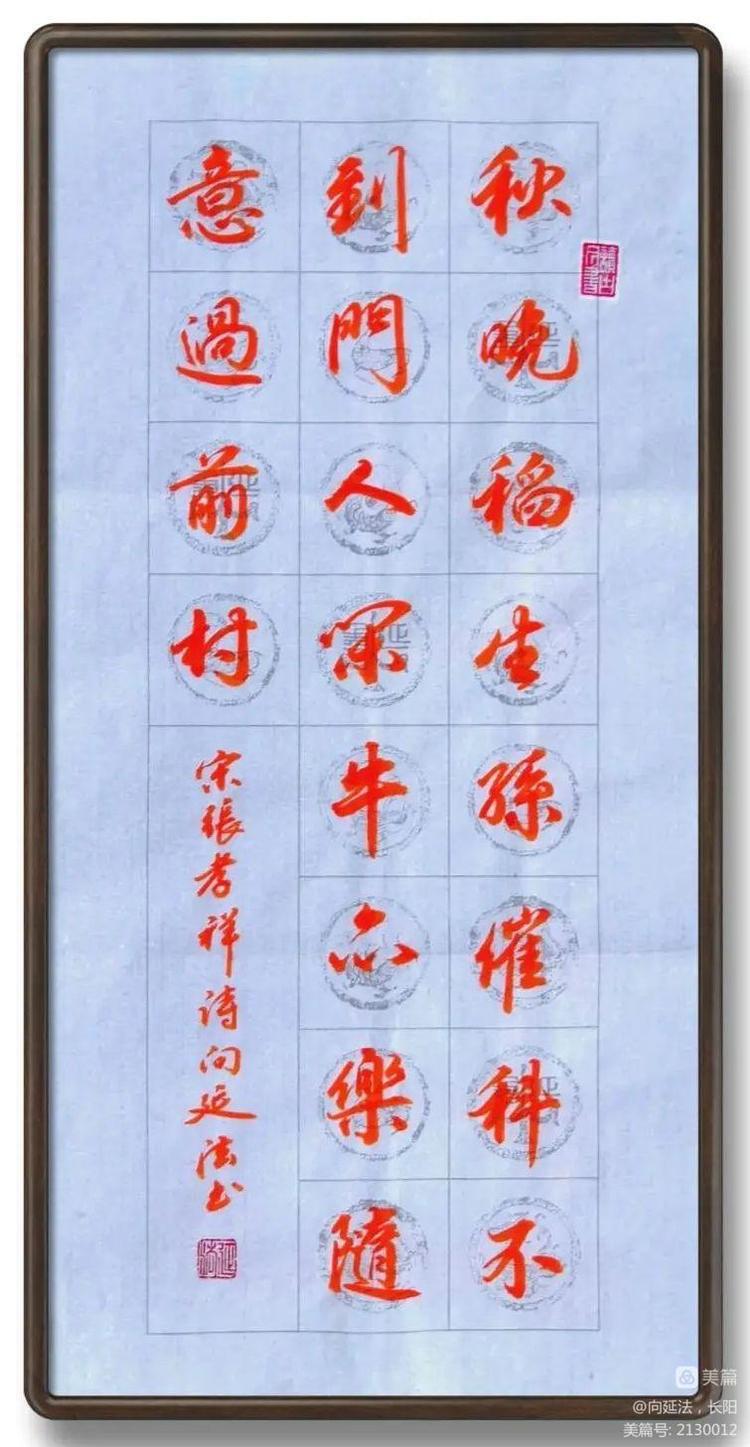 秋晚稻生孫催科不
到門人閑牛亦樂隨
意過前村
宋張孝祥詩向延法书
美篇
@向延法，长阳
美篇号: 2130012